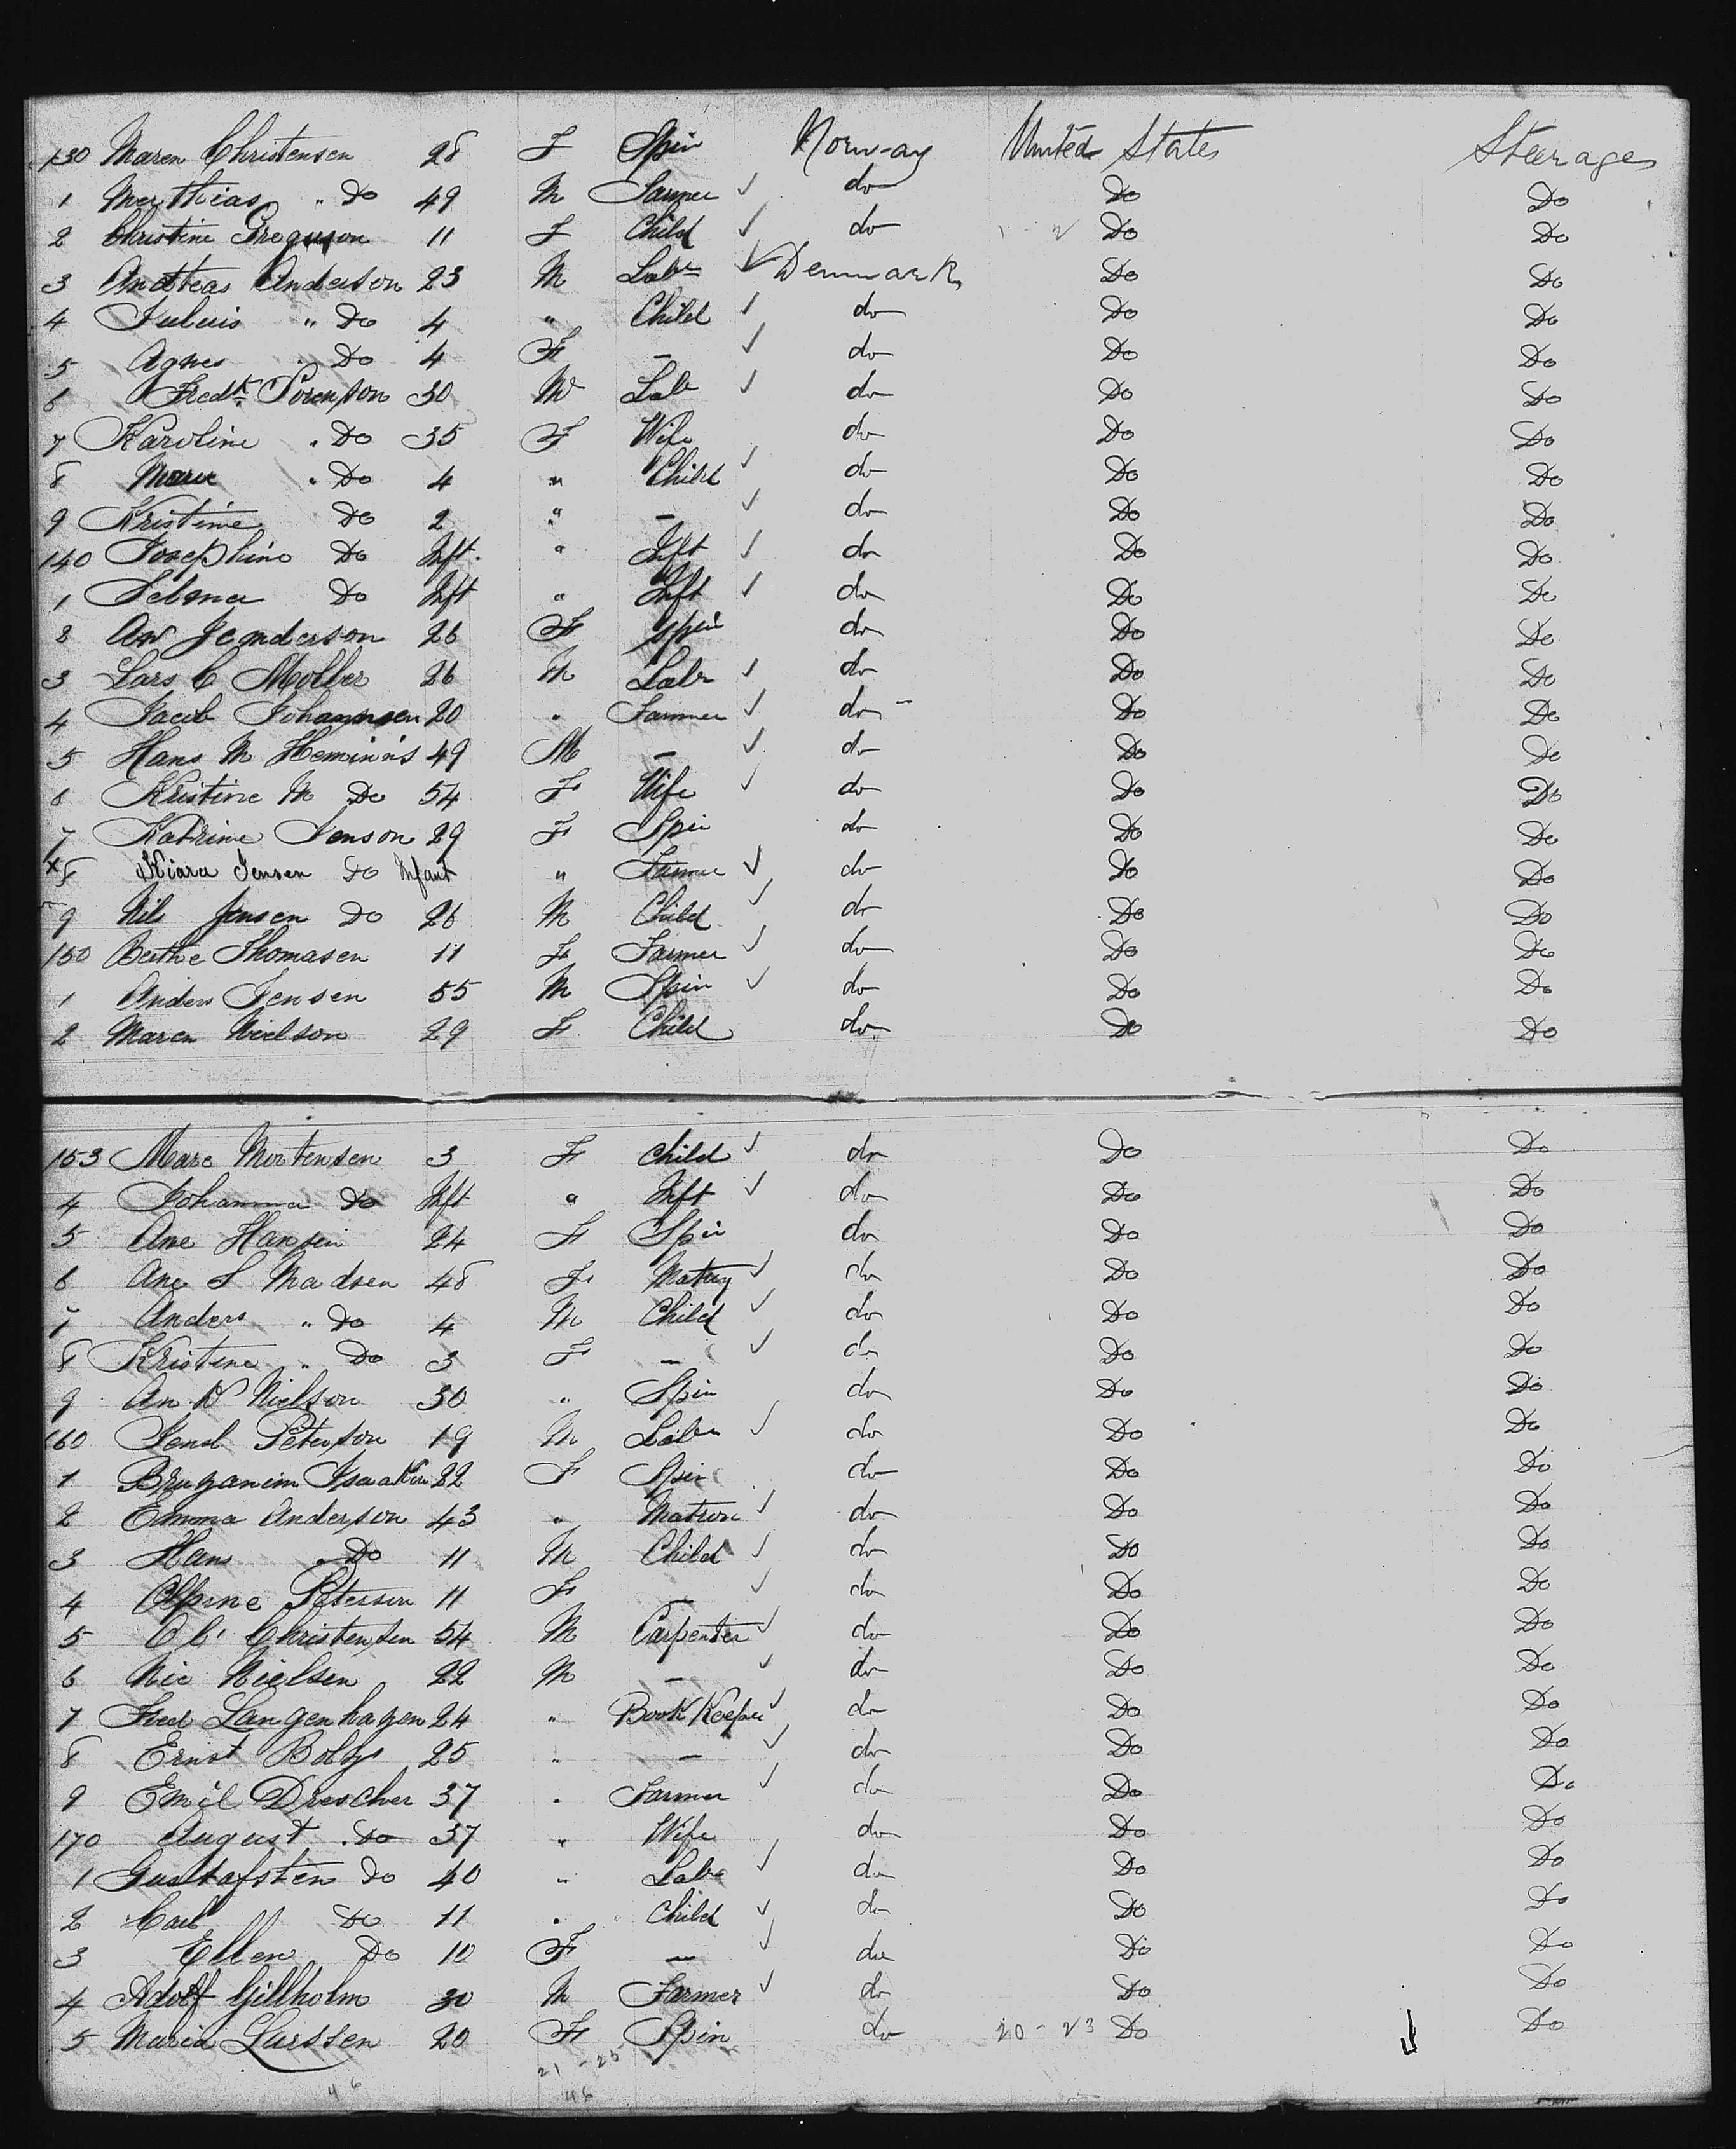 130 Maren Christensen 28 F Spin Norway United States Steerage
1 Matthias " Do 49 M Farmer ✓ do Do Do
2 Christine Greguson 11 F Child ✓ do Do Do
3 Andreas Anderson 23 M Labr ✓ Denmark Do Do
4 Juluis " Do 4 " Child ✓ do Do Do
5 Agnes Do 4 F - ✓ do Do Do
6 Fredk Sorenson 30 M Lab ✓ do Do Do
7 Karoline " Do 35 F Wife do Do Do
8 Marie " Do 4 " Child ✓ do Do Do
9 Kristine Do 2 " - ✓ do Do Do
140 Josephine Do Inft. " Inft ✓ do Do Do
1 Selma Do Inft " Inft ✓ do Do Do
2 An Jenderson 26 F Spin do Do Do
3 Lars C Moller 26 M Labr ✓ do Do Do
4 Jacob Johannsen 20 " Farmer ✓ do Do Do
5 Hans M Heminis 49 M - ✓ do Do Do
6 Kristine M Do 54 F Wife ✓ do Do Do
7 Katrine Jenson 29 F Spin do Do Do
x 8 Kiara Jensen Do Infant " Farmer ✓ do Do Do
9 Nils Jensen Do 26 M Child ✓ do Do Do
150 Berthe Thomasen 11 F Farmer ✓ do Do Do
1 Anders Jensen 55 M Spin ✓ do Do Do
2 Maren Nielson 29 F Child do Do Do
153 Mare Mortensen 3 F Child ✓ do Do Do
4 Johanna Do Inft " Inft ✓ do Do Do
5 Ane Hansen 24 F Spin do Do Do
6 Ane S Madsen 48 F ✓ do Do Do
7 Anders " Do 4 M Child ✓ do Do Do
8 Kristine " Do 3 F - ✓ do Do Do
9 An K Nielson 30 " Spin do Do Do
160 Peterson 19 M Labr ✓ do Do Do
1 22 F Spin do Do Do
2 Emma Anderson 43 " Matron ✓ do Do Do
3 Hans " Do 11 M Child ✓ do Do Do
4 Peterson 11 F - ✓ do Do Do
5 Christensen 54 M Carpenter ✓ do Do Do
6 Nic Nielsen 22 M - ✓ do Do Do
7 Fred Langenhagen 24 " Book Keeper ✓ do Do Do
8 Ernst 25 " - ✓ do Do Do
9 Emil Drescher 37 " Farmer ✓ do Do Do
170 August " Do 37 " Wife do Do Do
1 Gustafsten Do 40 " Labr ✓ do Do Do
2 Carl Do 11 " Child ✓ do Do Do
3 Ellen Do 10 F - ✓ do Do Do
4 Adolf Gillholm 30 M Farmer ✓ do Do Do
5 Maria Larssen 20 F Spin do 20-23 Do Do
21-25
46 46